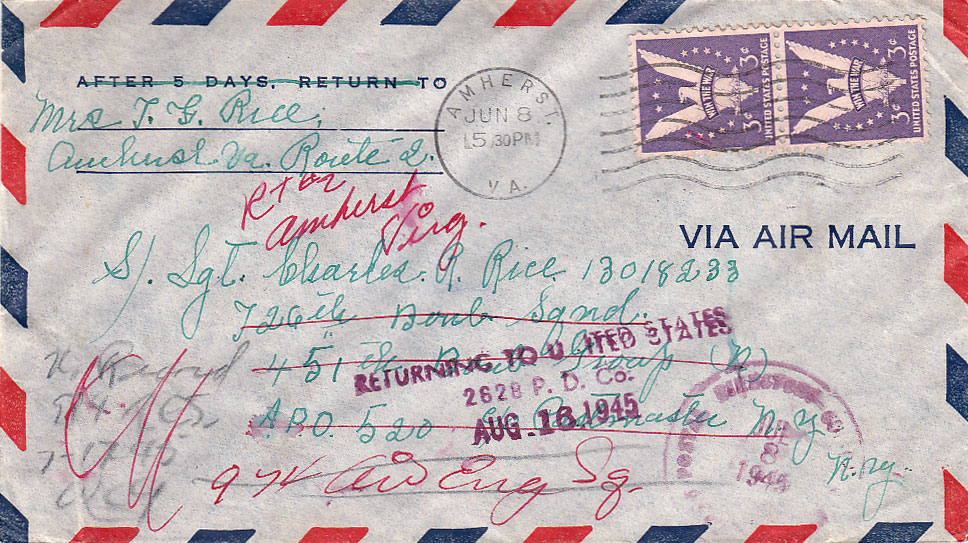 AFTER 5 DAYS, RETURN TO
Mrs T. G. Rice,
Amherst Va. Route 2.
AMHERST.
JUN 8
5 30 PM
1945
VA.
WIN THE WAR
3¢ 3¢
UNITED STATES POSTAGE
WIN THE WAR
3¢ 3¢
UNITED STATES POSTAGE
Rt #2
Amherst
Virg.
VIA AIR MAIL
S/. Sgt. Charles. R. Rice 13018233
726th Bomb Sqnd.
451th Bomb Group (H)
A.P.O. 520 Postmaster N.Y.
N.Y.
RETURNING TO U ITED STATES
2628 P. D. Co.
AUG. 16 1945
1945
No Record
7-17-45
974 Air Eng Sq.